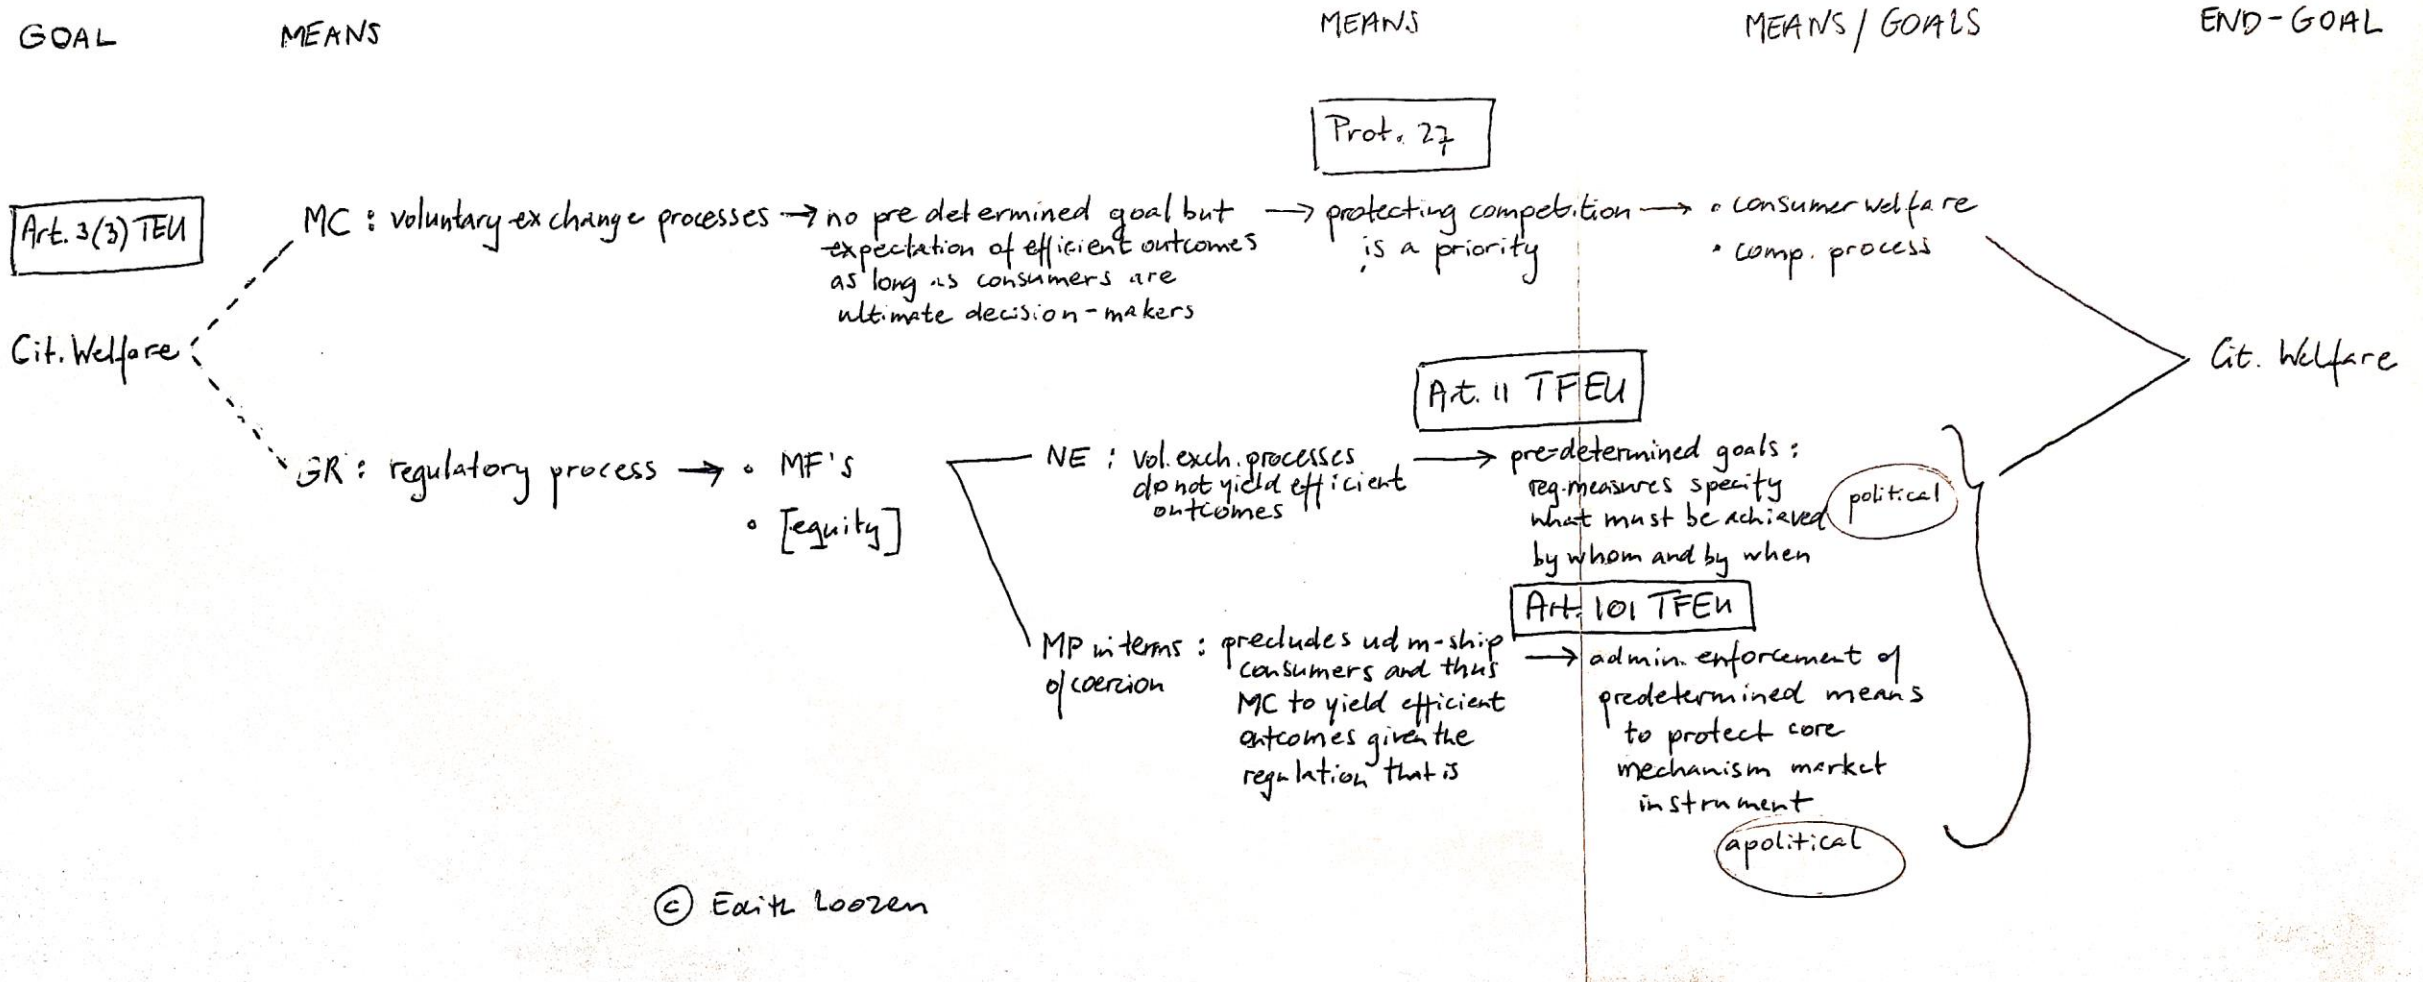 GOAL
MEANS
MEANS
MEANS / GOALS
END-GOAL
Prot. 27
Art. 3(3) TEU
MC : voluntary exchange processes → no predetermined goal but
expectation of efficient outcomes
as long as consumers are
ultimate decision-makers
→ protecting competition
is a priority
→ • consumer welfare
• comp. process
Cit. Welfare
Cit. Welfare
Art. 11 TFEU
GR : regulatory process → • MF's
• [equity]
NE : vol. exch. processes
do not yield efficient
outcomes
→ pre-determined goals :
reg. measures specify
what must be achieved
by whom and by when
political
Art. 101 TFEU
MP in terms
of coercion
: precludes udm-ship
consumers and thus
MC to yield efficient
outcomes given the
regulation that is
→ admin. enforcement of
predetermined means
to protect core
mechanism market
instrument
apolitical
© Edith Loozen